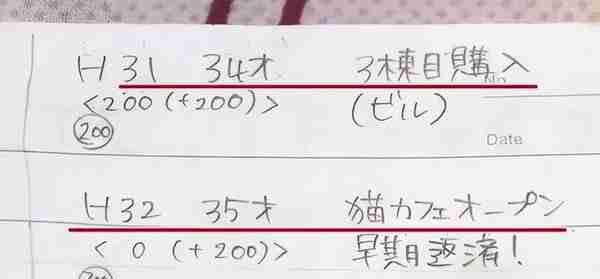 H31 34才 3棟目購入
No
<200 (+200)> (ビル)
200
Date
H32 35才 猫カフェオープン
< 0 (+200)> 早期返済!